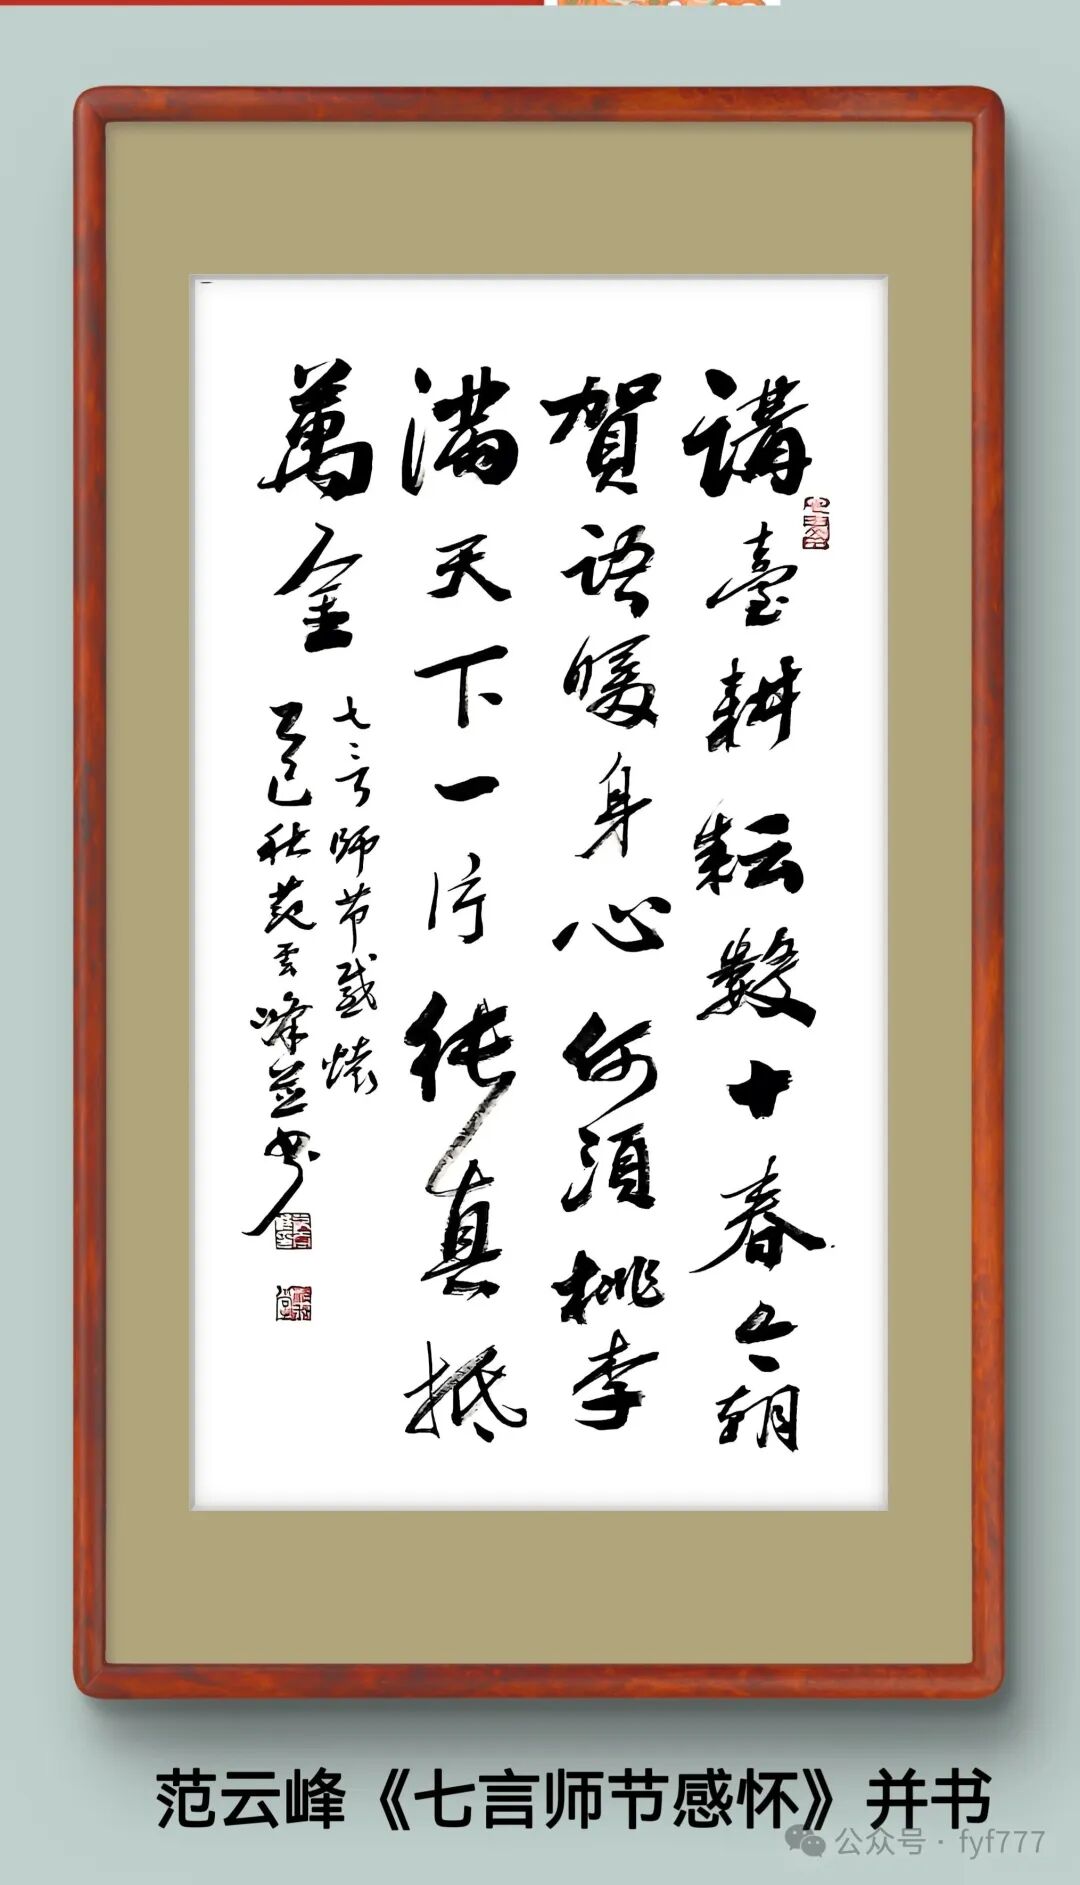 講臺耕耘數十春今朝
賀語暖身心何須桃李
满天下一片純真抵
萬金
七言师节感懷
乙巳秋范雲峰並书
范云峰《七言师节感怀》并书
公众号·fyf777